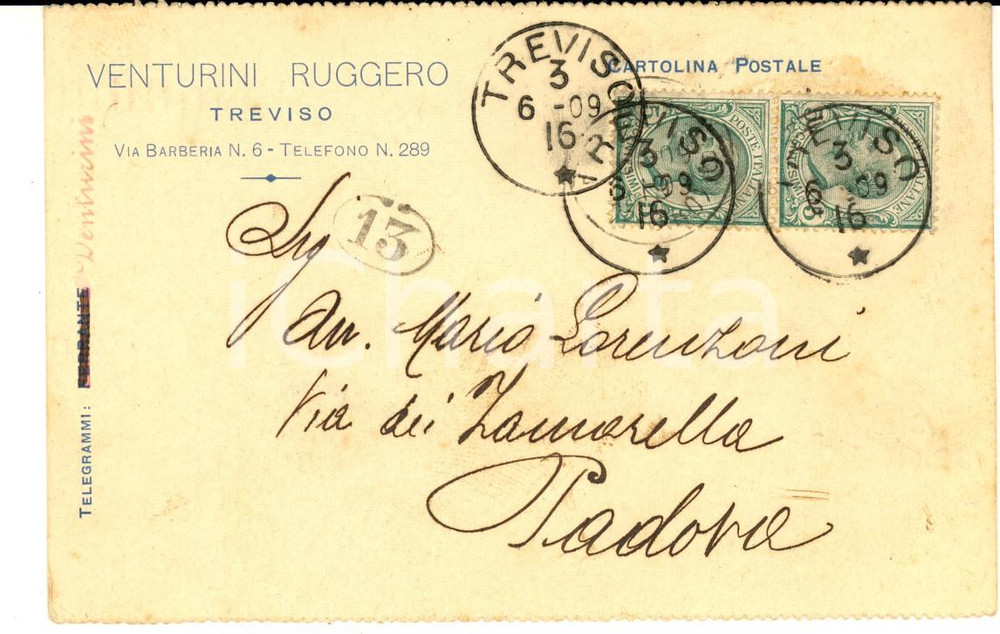 VENTURINI RUGGERO
TREVISO
VIA BARBERIA N. 6 - TELEFONO N. 289
CARTOLINA POSTALE
TREVISO
3
6 -09
16
TREVISO
3
6 -09
16
TREVISO
3
6 -09
16
POSTE ITALIANE
13
TELEGRAMMI: FERRANTE Venturini
Sig
Avv. Mario Lorenzoni
Via dei Zamarella
Padova
iCharta